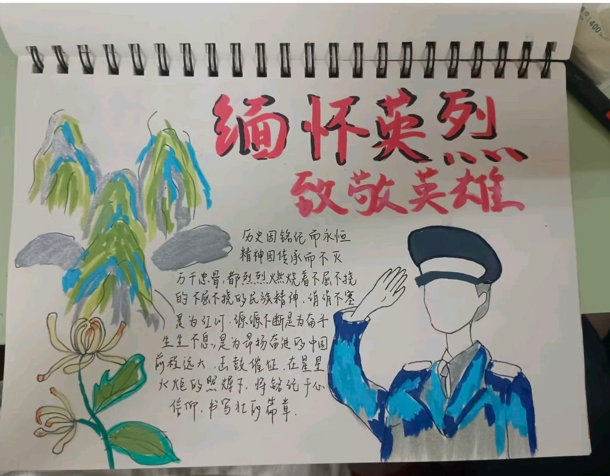 缅怀英烈
致敬英雄
历史因铭记而永恒
精神因传承而不灭
万千忠骨,都烈烈燃烧着不屈不挠
的不屈不挠的民族精神,涓涓不塞
是为江河,源源不断是为奋斗
生生不息,是为昂扬奋进的中国
前程远大,击鼓催征,在星星
火炬的照耀下,将铭记于心
信仰,书写壮丽篇章.